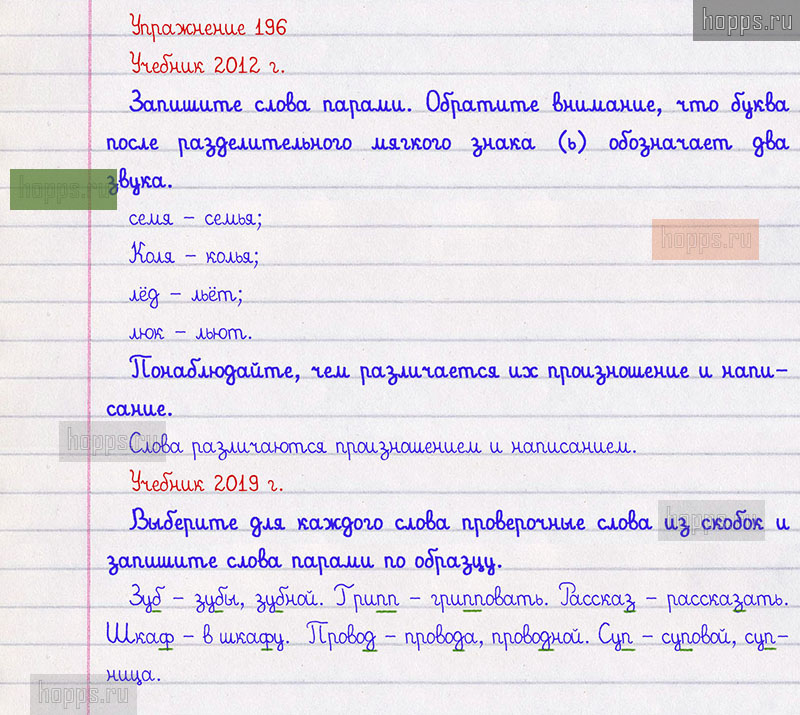 hopps.ru
Упражнение 196
Учебник 2012 г.
Запишите слова парами. Обратите внимание, что буква
после разделительного мягкого знака (ь) обозначает два
звука.
hopps.ru
семя – семья;
Коля – колья;
hopps.ru
лёд – льёт;
люк – льют.
Понаблюдайте, чем различается их произношение и напи-
сание.
Слова различаются произношением и написанием.
hopps.ru
Учебник 2019 г.
Выберите для каждого слова проверочные слова из скобок и
hopps.ru
запишите слова парами по образцу.
Зуб – зубы, зубной. Грипп – гриппо­вать. Рассказ – рассказать.
Шкаф – в шкафу. Провод – провода, проводной. Суп – суповой, суп-
ница.
hopps.ru